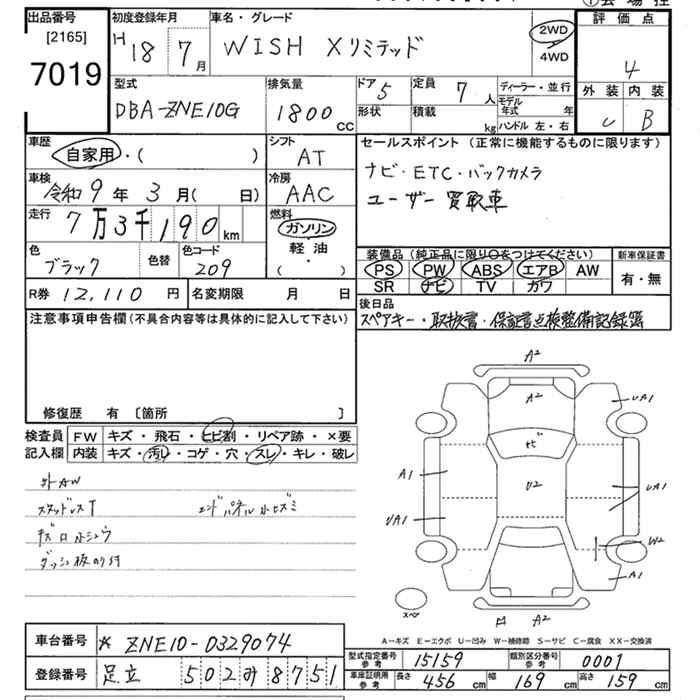 出品番号 [2165] 7019
初度登録年月 H 18 7月
車名・グレード WISH Xリミテッド
2WD 4WD
評価点 4
外装 内装 B
型式 DBA-ZNE10G
排気量 1800 CC
ドア 5 定員 7人
形状 積載 kg
ディーラー・並行
モデル年式 年
ハンドル 左・右
車歴 自家用・( )
シフト AT
車検 令和9年3月( 日)
冷房 AAC
走行 7万3千190km
燃料 ガソリン 軽油・( )
色 ブラック 色替 色コード 209
R券 12,110円 名変期限 月 日
セールスポイント (正常に機能するものに限ります)
ナビ・ETC・バックカメラ
ユーザー買取車
装備品(純正品に限り〇をつけてください)
PS PW ABS エアB AW
SR ナビ TV カワ
新車保証書 有・無
後日品
スペアキー・取扱書・保証書点検整備記録簿
注意事項申告欄(不具合内容等は具体的に記入して下さい)
修復歴 有 〔箇所 〕
検査員記入欄
FW キズ・飛石・ヒビ割・リペア跡・×要
内装 キズ・汚れ・コゲ・穴・スレ・キレ・破レ
外AW
スタッドレスT
エンドパネル小ヒズミ
キズ凹小シュウ
ダッシュ板のり付
A2
A2
UA1
ヒビ
A1
U2
UA1
UA1
W2
A1
スペア
A2
A-キズ E-エクボ U-凹み W-補修跡 S-サビ C-腐食 XX-交換済
車台番号 ZNE10-0329074
登録番号 足立 502 み 8751
型式指定番号 参考 15159
類別区分番号 参考 0001
車庫証明用 参考 長さ 456 cm 幅 169 cm 高さ 159 cm